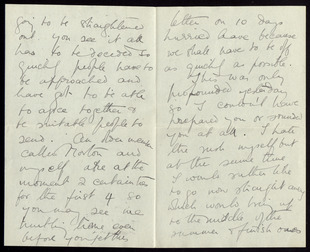 going to be straightened
out you see it all
has to be decided so
quickly people have to
be approached and
have got to be able
to agree together &
be suitable people to
send. An
called Norton and
myself are at the
moment 2 certainties
for the first 4 so
you may see me
home even
before you get this
letter on 10 days
hurried leave because
we shall have to be off
as quickly as possible.
This was only
propounded yesterday
so I couldn't have
prepared you or
you at all. I hate
the rush myself but
at the same time
I would rather like
to go now straight away
which would bring us
to the middle of the
summer & finish